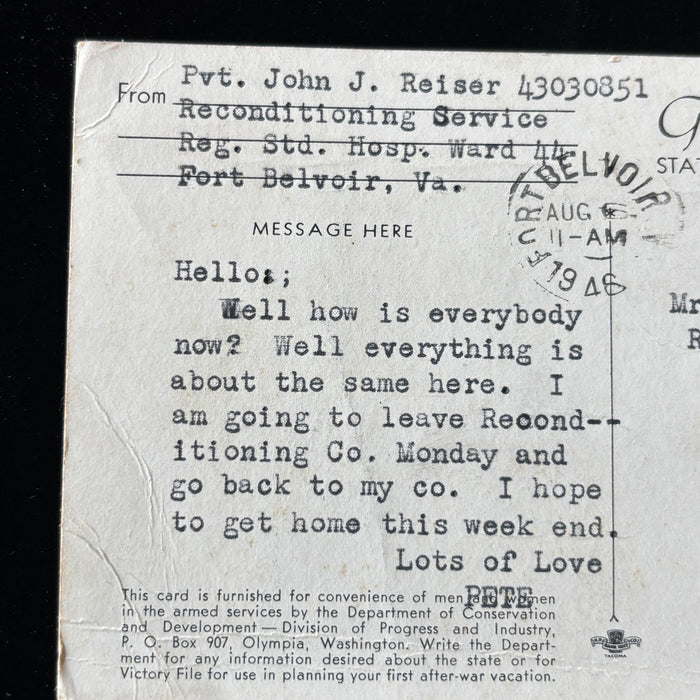 From Pvt. John J. Reiser 43030851
Reconditioning Service
Reg. Std. Hosp. Ward 44
Fort Belvoir, Va.
G
STA
FORT BELVOIR
AUG
11-AM
1946
MESSAGE HERE
Mr
R
Hello:;
Well how is everybody
now? Well everything is
about the same here. I
am going to leave Recond--
itioning Co. Monday and
go back to my co. I hope
to get home this week end.
Lots of Love
PETE
This card is furnished for convenience of men and women
in the armed services by the Department of Conservation
and Development — Division of Progress and Industry,
P. O. Box 907, Olympia, Washington. Write the Depart-
ment for any information desired about the state or for
Victory File for use in planning your first after-war vacation.
TACOMA